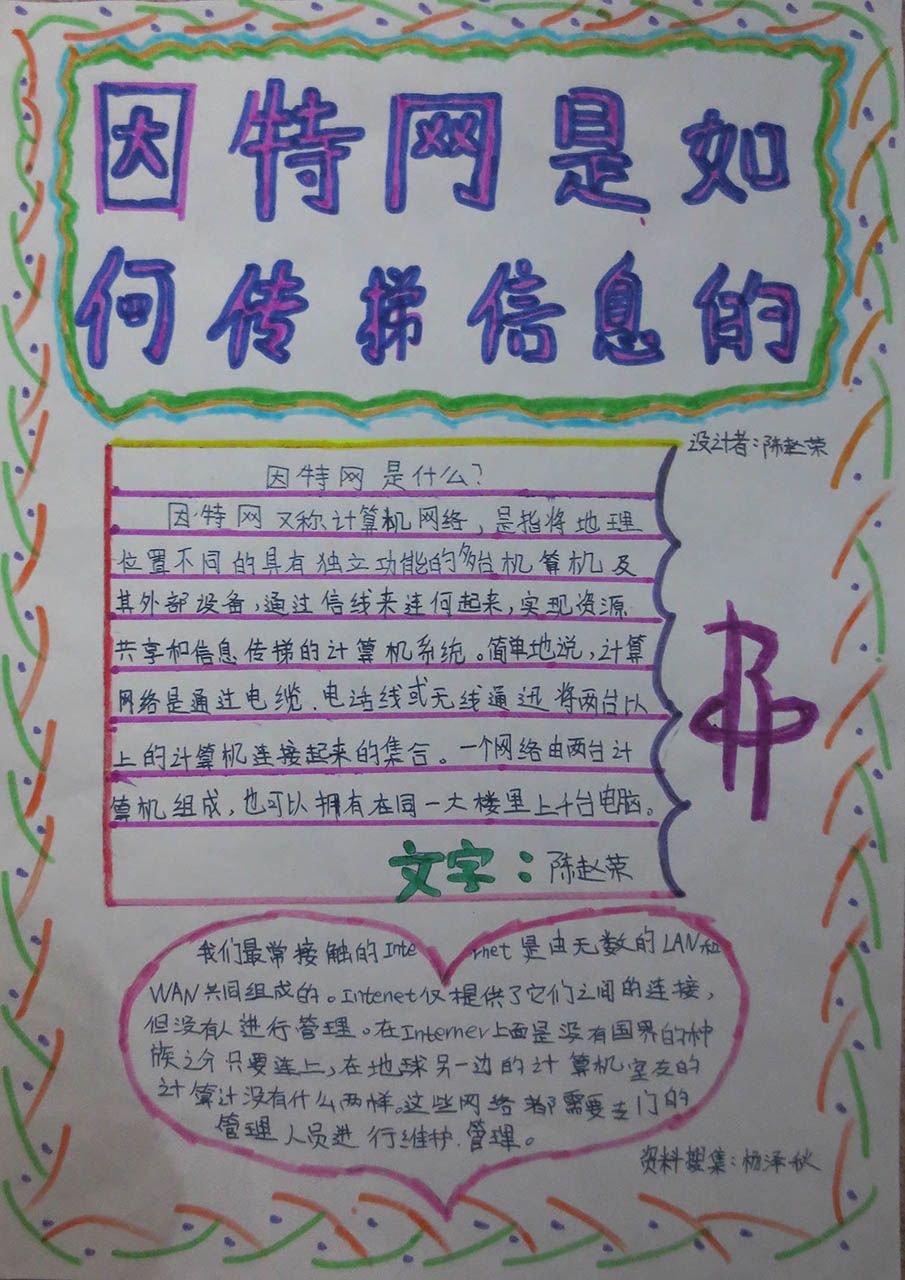 因特网是如
何传递信息的
设计者:陈赵荣
因特网是什么?
因特网又称计算机网络,是指将地理
位置不同的具有独立功能的多台机算机及
其外部设备,通过信线来连何起来,实现资源
共享和信息传递的计算机系统。简单地说,计算
网络是通过电缆.电话线或无线通迅将两台以
上的计算机连接起来的集合。一个网络由两台计
算机组成,也可以拥有在同一大楼里上千台电脑。
文字:陈赵荣
我们最常接触的Inte rnet是由无数的LAN和
WAN共同组成的。Intenet仅提供了它们之间的连接,
但没有人进行管理。在Interner上面是没有国界的种
族之分只要连上,在地球另一边的计算机室友的
计算计没有什么两样。这些网络都需要专门的
管理人员进行维护.管理。
资料搜集:杨泽秋